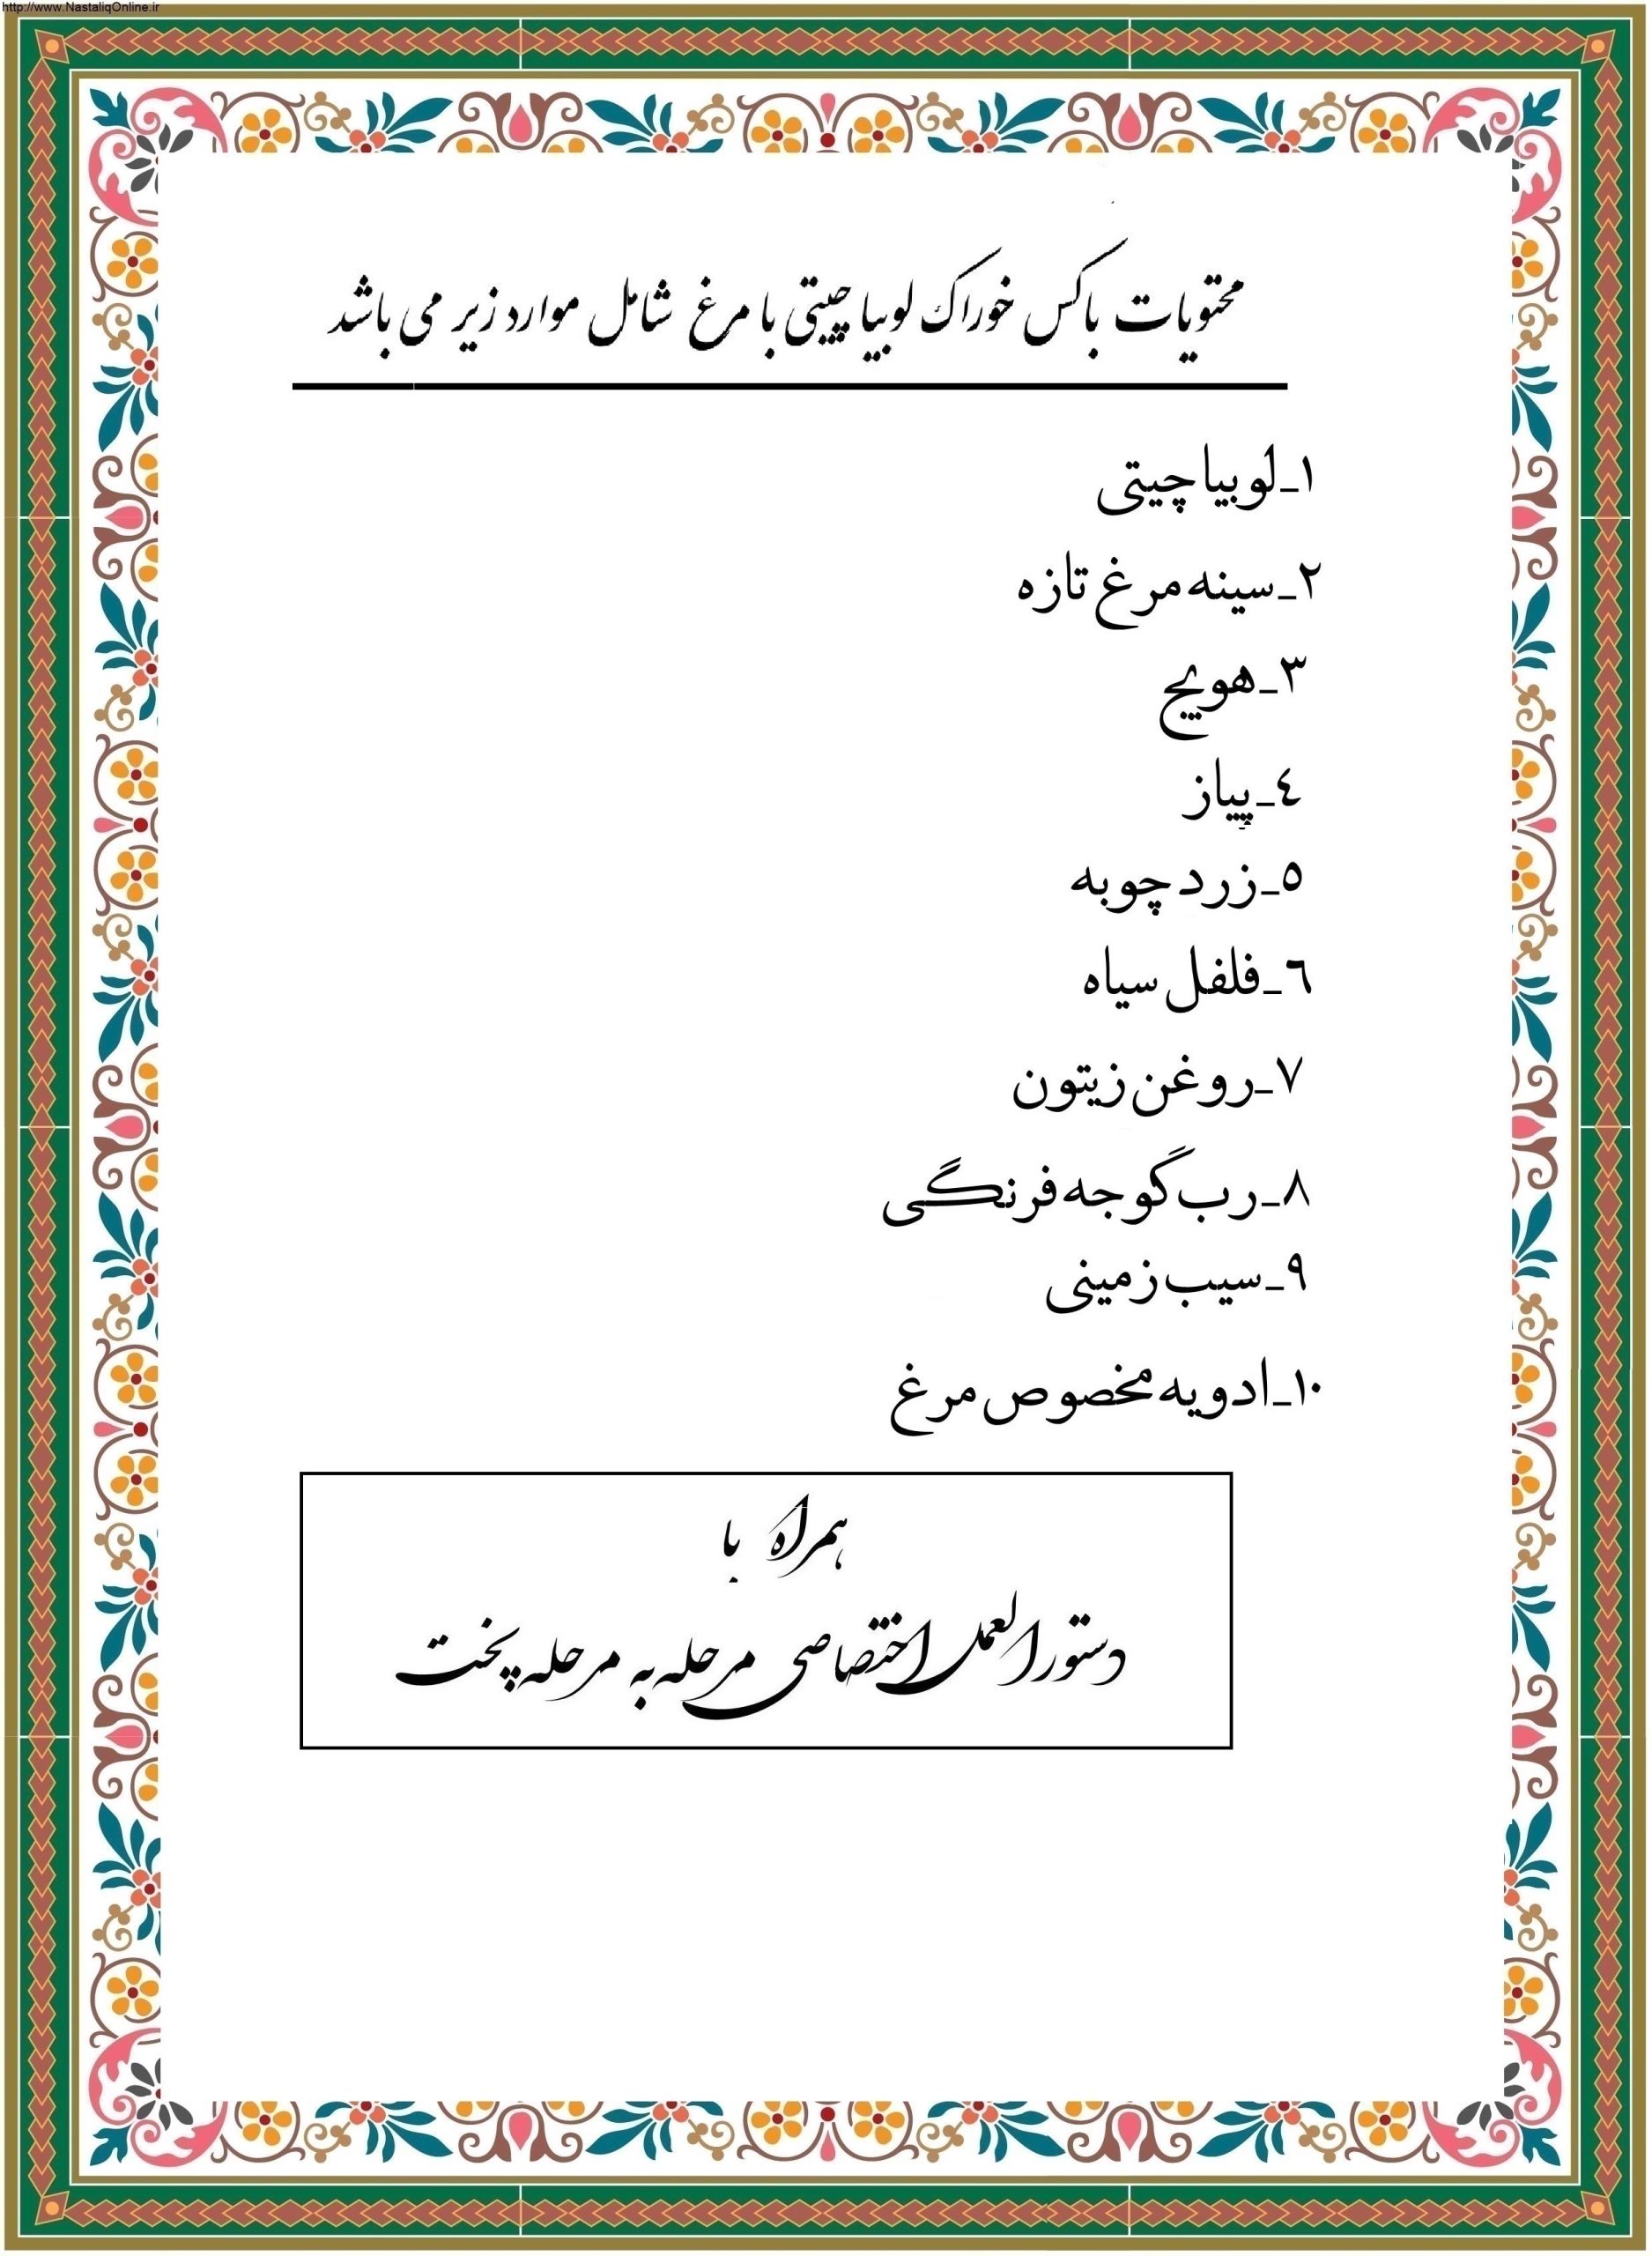 http://www.NastaliqOnline.ir
محتویات باکس خوراک لوبیا چیتی با مرغ شامل موارد زیر می باشد
١_لوبیا چیتی
٢_سینه مرغ تازه
٣_هویج
٤_پیاز
٥_زرد چوبه
٦_فلفل سیاه
٧_روغن زیتون
٨_رب گوجه فرنگی
٩_سیب زمینی
١٠_ادویه مخصوص مرغ
همراه با
دستورالعمل اختصاصی مرحله به مرحله پخت